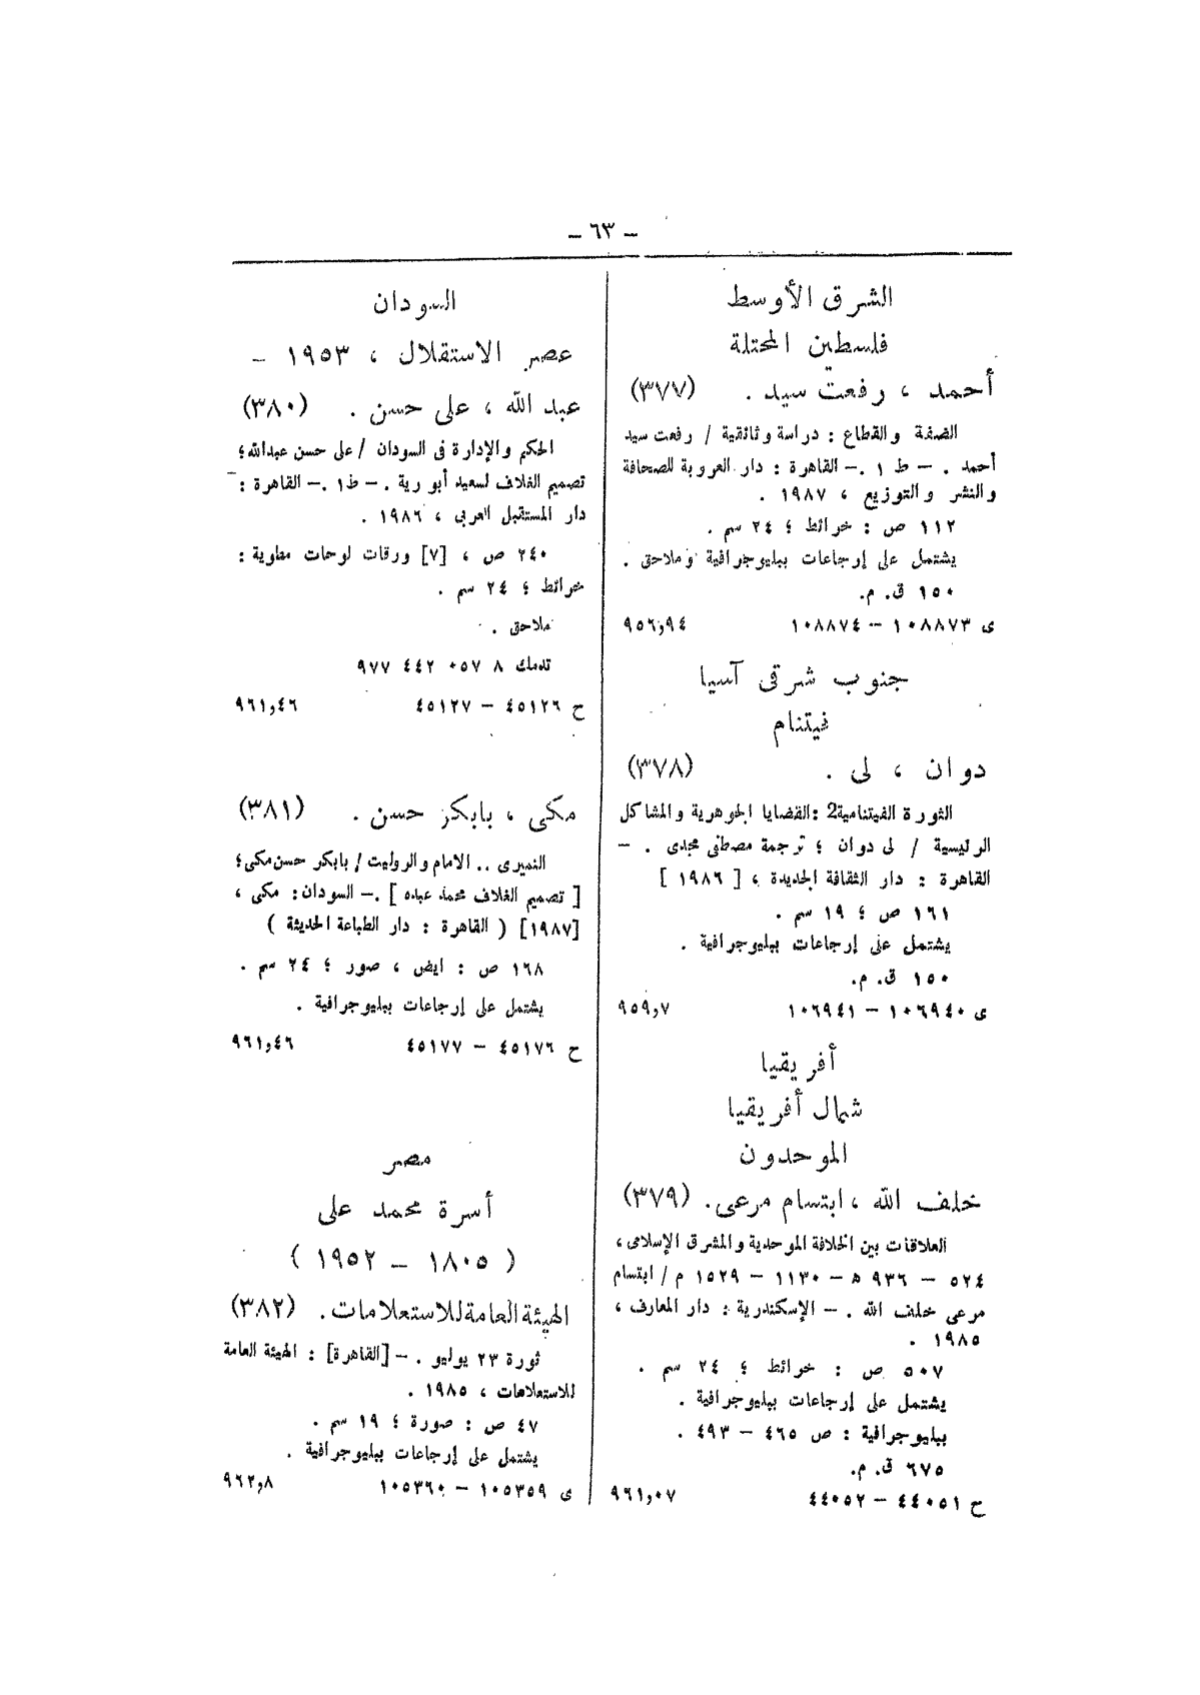 – ٦٣ –
الشرق الأوسط
فلسطين المحتلة
أحمد ، رفعت سيد . (٣٧٧)
الضفة والقطاع : دراسة وثائقية / رفعت سيد
أحمد . – ط ١ .– القاهرة : دار العروبة للصحافة
والنشر والتوزيع ، ١٩٨٧ .
١١٢ ص : خرائط ؛ ٢٤ سم .
يشتمل على إرجاعات ببليوجرافية وملاحق .
١٥٠ ق. م.
ى ١٠٨٨٧٣ – ١٠٨٨٧٤ ٩٥٦,٩٤
جنوب شرقى آسيا
فيتنام
دوان ، لى . (٣٧٨)
الثورة الفيتنامية2 :القضايا الجوهرية والمشاكل
الرئيسية / لى دوان ؛ ترجمة مصطفى مجدى . –
القاهرة : دار الثقافة الجديدة ، [ ١٩٨٦ ]
١٦١ ص ؛ ١٩ سم .
يشتمل على إرجاعات ببليوجرافية .
١٥٠ ق. م.
ى ١٠٦٩٤٠ – ١٠٦٩٤١ ٩٥٩,٧
أفريقيا
شمال أفريقيا
الموحدون
خلف الله ، ابتسام مرعى. (٣٧٩)
العلاقات بين الخلافة الموحدية والمشرق الإسلامى ،
٥٢٤ – ٩٣٦ ه – ١١٣٠ – ١٥٢٩ م / ابتسام
مرعى خلف الله . – الإسكندرية : دار المعارف ،
١٩٨٥ .
٥٠٧ ص : خرائط ؛ ٢٤ سم .
يشتمل على إرجاعات ببليوجرافية .
ببليوجرافية : ص ٤٦٥ – ٤٩٣ .
٦٧٥ ق. م.
ح ٤٤٠٥١ – ٤٤٠٥٢ ٩٦١,٠٧
السودان
عصر الاستقلال ، ١٩٥٣ –
عبد الله ، على حسن . (٣٨٠)
الحكم والإدارة فى السودان / على حسن عبدالله ؛
تصميم الغلاف لسعيد أبو رية . – ط١ .– القاهرة :
دار المستقبل العربى ، ١٩٨٦ .
٢٤٠ ص ، [٧] ورقات لوحات مطوية :
خرائط ؛ ٢٤ سم .
ملاحق .
تدمك ٨ ٠٥٧ ٤٤٢ ٩٧٧
ح ٤٥١٢٦ – ٤٥١٢٧ ٩٦١,٤٦
مكى ، بابكر حسن . (٣٨١)
النميرى .. الامام والروليت / بابكر حسن مكى ؛
[ تصميم الغلاف محمد عبده ] .– السودان : مكى ،
[١٩٨٧] ( القاهرة : دار الطباعة الحديثة )
١٦٨ ص : ايض ، صور ؛ ٢٤ سم .
يشتمل على إرجاعات ببليوجرافية .
ح ٤٥١٧٦ – ٤٥١٧٧ ٩٦١,٤٦
مصر
أسرة محمد على
( ١٨٠٥ – ١٩٥٢ )
الهيئة العامة للاستعلامات . (٣٨٢)
ثورة ٢٣ يوليو . – [القاهرة] : الهيئة العامة
للاستعلامات ، ١٩٨٥ .
٤٧ ص : صورة ؛ ١٩ سم .
يشتمل على إرجاعات ببليوجرافية .
ى ١٠٥٣٥٩ – ١٠٥٣٦٠ ٩٦٢,٨